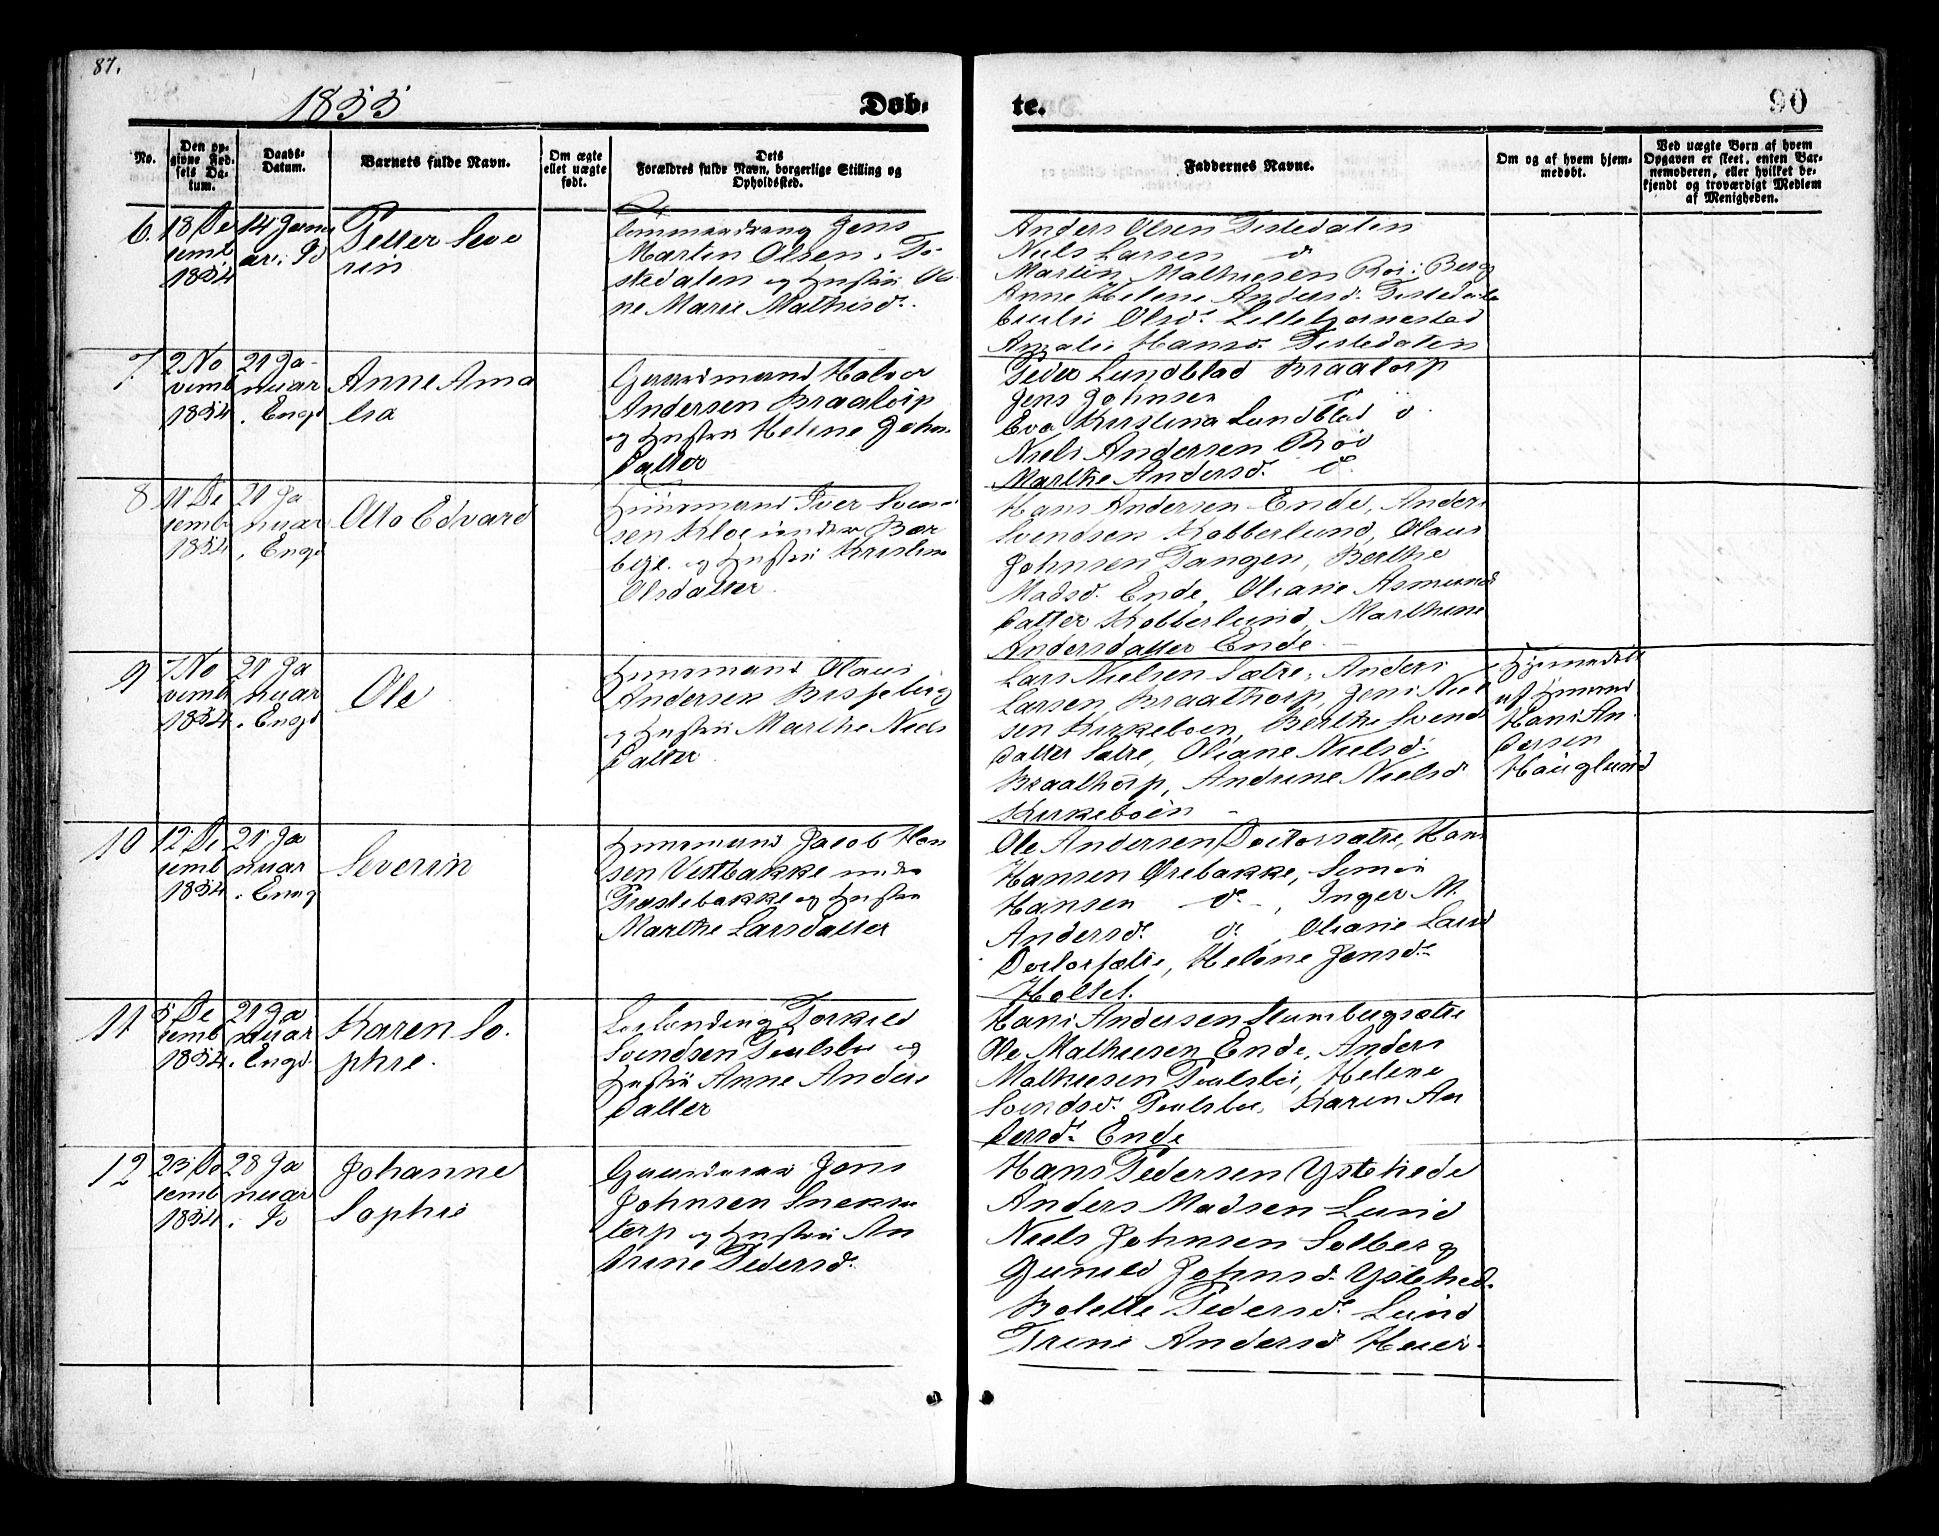 87.
1855
Døb-
te.
90
No.
Den op-
givne Fød-
sels Da-
tum.
Daabs-
Datum.
Barnets fulde Navn.
Om ægte
ellet uægte
født.
Dets
Forældres fulde Navn, borgerlige Stilling og
Opholdssted.
Faddernes Navne.
Om og af hvem hjem-
medøbt.
Ved uægte Børn af hvem
Opgaven er skeet, enten Bar-
nemoderen, eller hvilket be-
kjendt og troværdigt Medlem
af Menigheden.
6.
18 De
cemb
1854
14 Janu
ar i Id
Petter Seve
rin
Tømmerdreng Jens
Martin Olsen, Ti
stedalen og Hustru Ol
ne Marie Mathisd.
Anders Olsen Tistedalen
Niels Larsen do
Martin Mathiesen Røi i Berg
Anne Helene Andersd. Tistedale
Olsd. Lillebjørnestad
Hansd. Tistedalen
7.
2 No
vemb
1854
21 Ja-
nuar
i Engd
Anne Ama
lia
Gaardmand Halvor
Andersen Braatorp
og Hustru Helene Johns
datter
Peder Lundblad Braatorp
Jens Johnsen do
Eva Kristina Lundblad do.
Niels Andersen Røi
Marthe Andersd. do.
8
11 De
cemb
1854
21 Ja
nuar
i Engd
Otto Edvard
Huusmand Iver Svend
sen Kloe under Bær
bye og Hustru Kristine
Olsdatter.
Hans Andersen Ende, Anders
Svendsen Kobberlund, Olaus
Johnsen Tangen, Berthe
Madsd. Ende, Oliane Asmunds
datter Kobberlund, Marthine
Andersdatter Ende.
9
7 No
vemb
1854
21 Ja
nuar
i Engd
Ole
Huusmand Olaus
Andersen Bispeberg
og Hustru Marthe Niels
datter.
Lars Nielsen Sætre, Anders
Larsen Braathorp, Jens Niel
sen Kirkeboen, Berthe Svends
datter Sætre, Oliane Nielsd.
Braathorp, Andrine Nielsd
Kirkeboen
Hjemmedøbt
af Huusmd
Hans An
dersen
Hauglund
10
12 De
cemb
1854
21 Ja
nuar
i Eng
Severin
Huusmand Jacob Han
sen Vestbakke under
Præstebakke og Hustru
Marthe Larsdatter
Ole Andersen Doctorsætre, Hans
Hansen Ørebakke, Simen
Hansen do, Inger M
Andersd. do, Oliane Larsd
Doctorsætre, Helene Jensd.
Holtet.
11
5 De
cemb
1854
21 Ja
nuar
i Engd.
Karen So.
phie.
Leilending Torkild
Svendsen Poulsbo og
Hustru Anne Anders
datter
Hans Andersen Stumbergsætre
Ole Mathiesen Ende, Anders
Mathiesen Poulsbo, Helene
Svendsd. Poulsbo, Karen An
dersd. Ende
12
23 De
cemb
1854
28 Ja
nuar
i Id
Johanne
Sophie
Gaardmand Jens
Johnsen Snekke
torp og Hustru An
drine Pedersd.
Hans Pedersen Ystehede
Anders Madsen Lund
Niels Johnsen Solberg
Gunild Johnsd. Ystehed.
Bolette Pedersd. Lund
Trine Andersd. Heier.